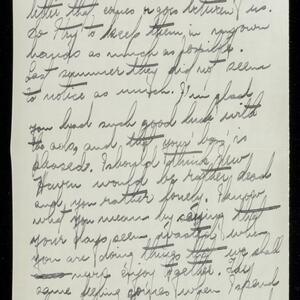 letter that comes or goes between us.
So I try to keep them in my own
hands as much as possible.
Last summer they did not seem
to notice as much. I'm glad
you had such good luck with
the and that your 'boy' is
pleased. I should think New
Haven would be rather dead
and you rather lonely. I know
what you mean by saying that
your days seem wasted when
you are doing things that we shall
more enjoy together. The
same feeling comes when I spend